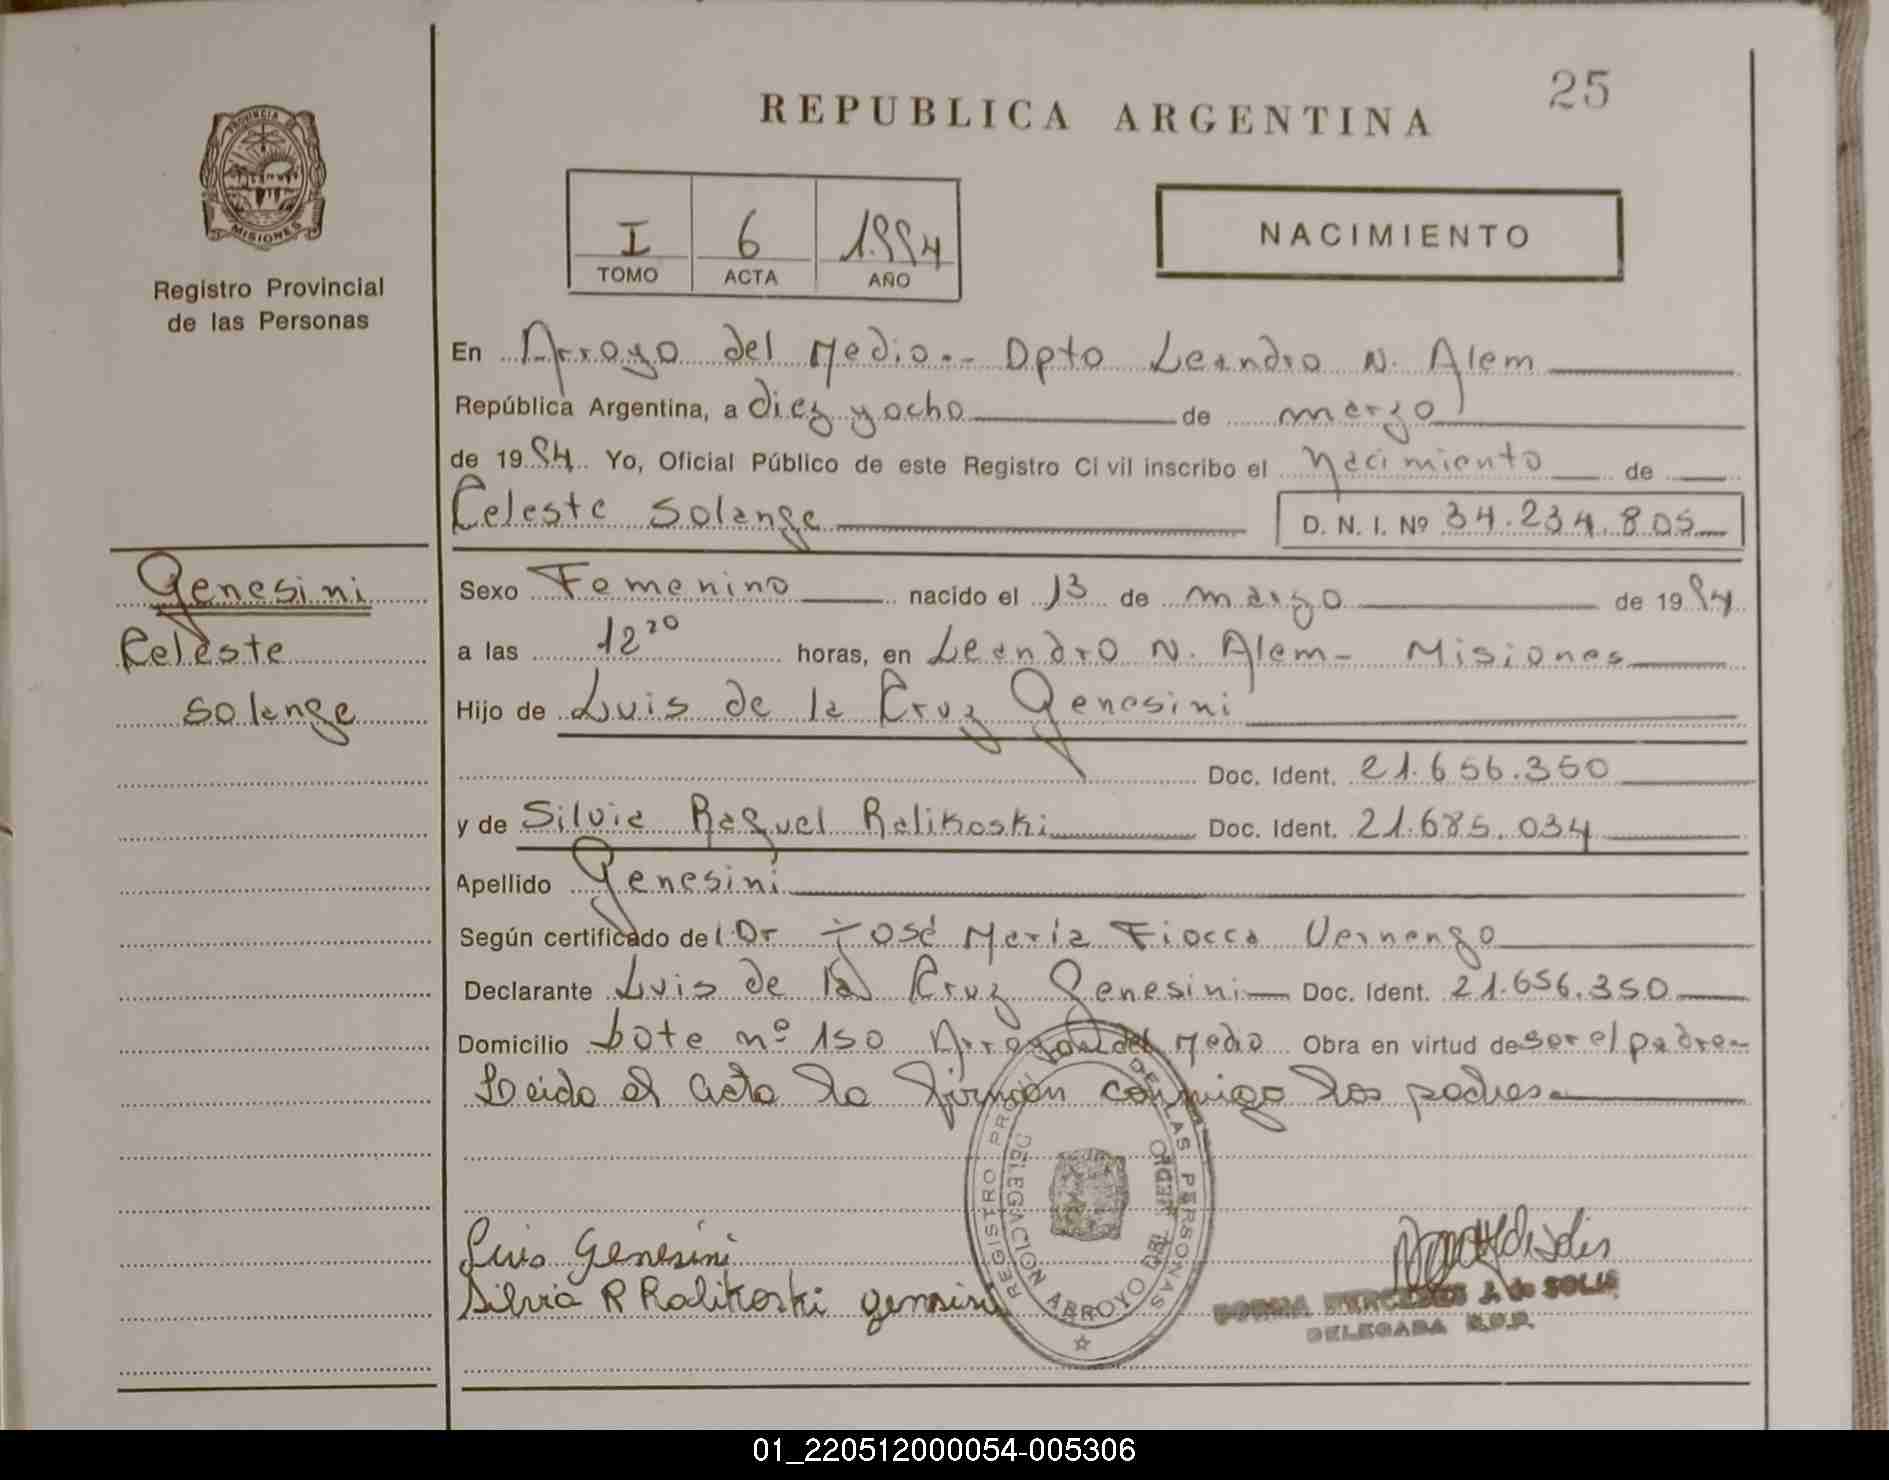 25
REPUBLICA ARGENTINA
PROVINCIA DE
MISIONES
Registro Provincial
de las Personas
I 6 1.994
TOMO ACTA AÑO
NACIMIENTO
En Arroyo del Medio.- Dpto Leandro N. Alem
República Argentina, a diez y ocho de marzo
de 1994 Yo, Oficial Público de este Registro Civil inscribo el Nacimiento de
Celeste Solange D. N. I. Nº 34.234.805
Genesini
Celeste
Solange
Sexo Femenino nacido el 13 de marzo de 1994
a las 12 20 horas, en Leandro N. Alem - Misiones
Hijo de Luis de la Cruz Genesini
Doc. Ident. 21.656.350
y de Silvia Raquel Ralikoski Doc. Ident. 21.685.034
Apellido Genesini
Según certificado del Dr José María Fiocca Vernengo
Declarante Luis de la Cruz Genesini Doc. Ident. 21.656.350
Domicilio Lote nº 150 Arroyo del Medio Obra en virtud de ser el padre
Leida el acta la firman conmigo los padres
REGISTRO PROV. DE LAS PERSONAS
DELEGACION ARROYO DEL MEDIO
Luis Genesini
Silvia R Ralikoski genesini
MERCEDES J. de SOLIS
DELEGADA R.P.P.
01_220512000054-005306